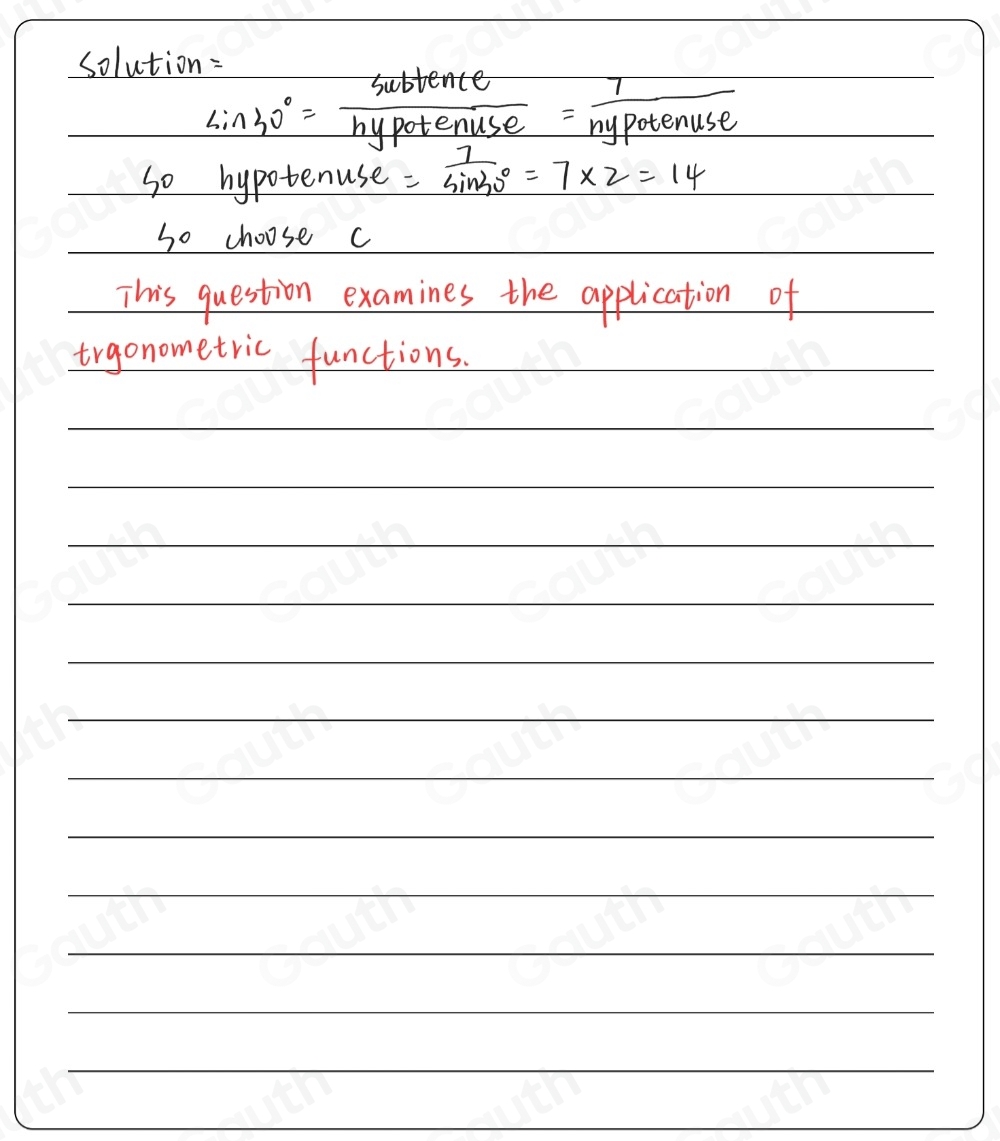 Solution =
sin30° = subtence / hypotenuse = 7 / hypotenuse
so hypotenuse = 7 / sin30° = 7 × 2 = 14
so choose C
This question examines the application of
trgonometric functions.